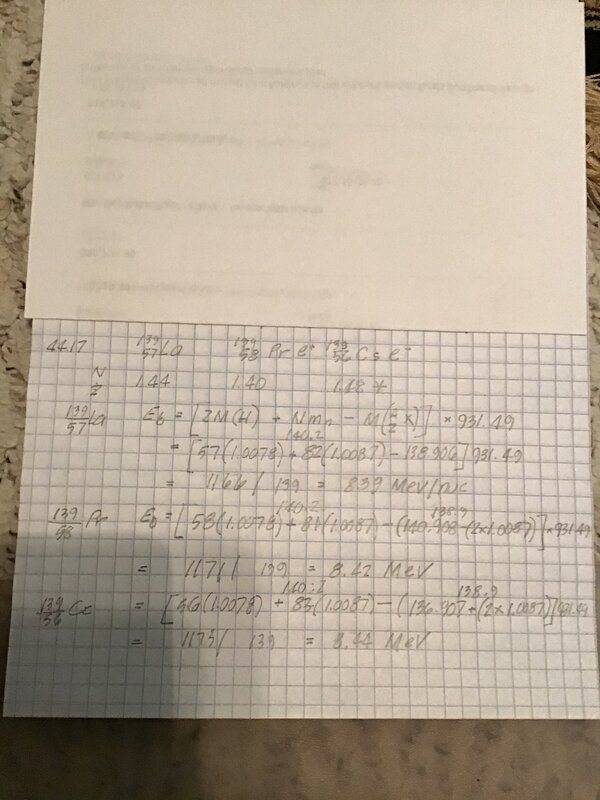 4417 139/57 La 139/58 Pr e⁺ 139/56 Cs e⁻
N/Z 1.44 1.40 1.48
139/57 La E_b = [ZM(H) + Nm_n − M(A/Z X)] × 931.49
140.2
= [57(1.0078) + 82(1.0087) − 138.906] 931.49
= 1166 / 139 = 8.39 MeV/nuc
140.2 138.9
139/58 Pr E_b = [58(1.0078) + 81(1.0087) − (140.908 − (2×1.0087)] × 931.49
= 1171 / 139 = 8.42 MeV
140.2 138.9
139/56 = [56(1.0078) + 83(1.0087) − (136.907 + (2×1.0087)] 931.49
= 1173 / 139 = 8.44 MeV